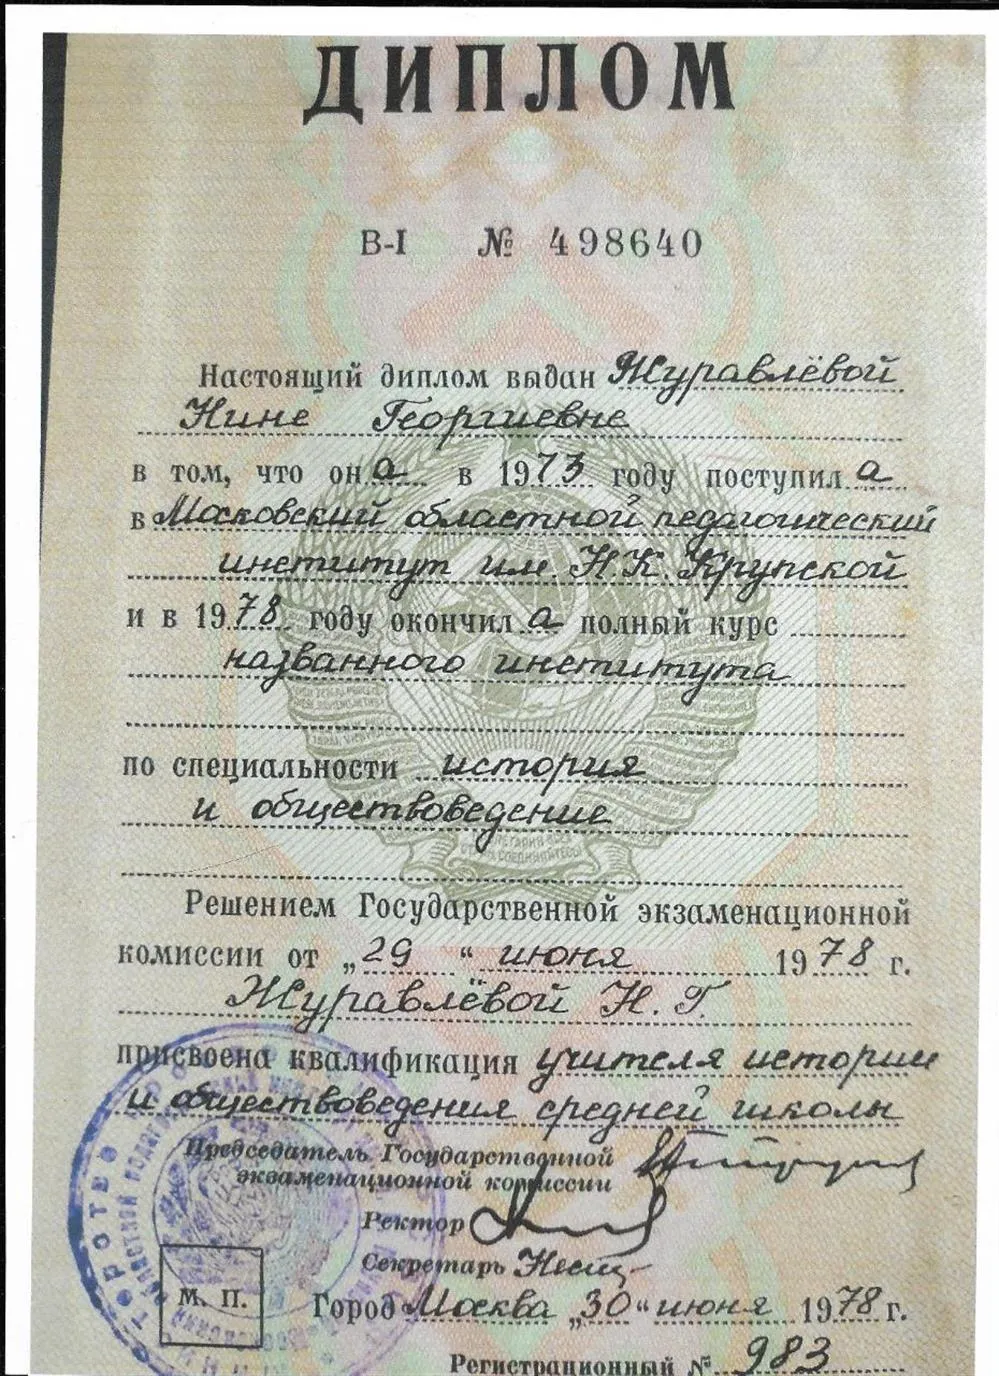 ДИПЛОМ
В-I № 498640
Настоящий диплом выдан Журавлёвой
Нине Георгиевне
в том, что он а в 1973 году поступил а
в Московский областной педагогический
институт им. Н.К. Крупской
и в 1978 году окончил а полный курс
названного института
по специальности история
и обществоведение
Решением Государственной экзаменационной
комиссии от „29“ июня 1978 г.
Журавлёвой Н. Г.
присвоена квалификация учителя истории
и обществоведения средней школы
Председатель Государственной
экзаменационной комиссии
Ректор
Секретарь
М. П.
Город Москва „30“ июня 1978 г.
Регистрационный № 983